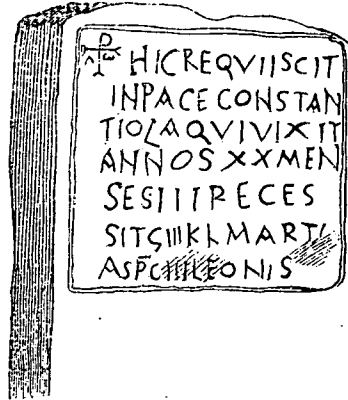 ⳨ Λ ω HIC REQVIISCIT
IN PACE CONSTAN
TIOLA QVI VIXIT
ANNOS XX MEN
SES III RECES
SIT ϚIII KL MARTI
AS P̄C LEONIS